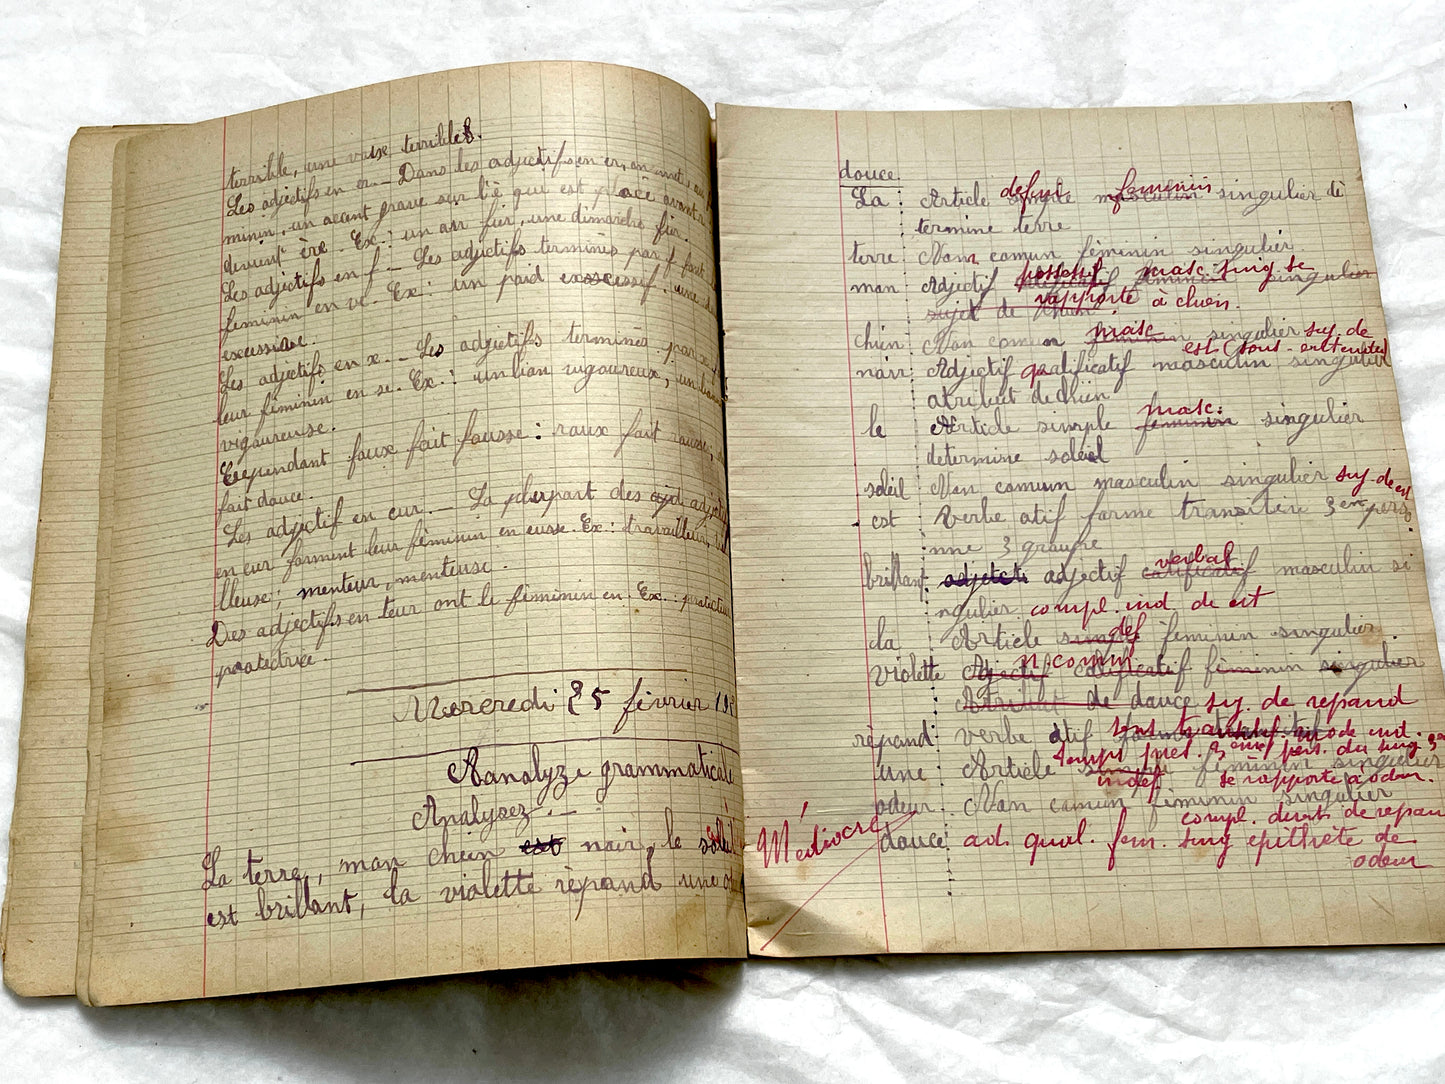 terrible, une vaise terribles.
Les adjectifs en er. — Dans les adjectifs en er, on met, au
minin, un acent grave sur l'è qui est placé avant r
devient ère. Ex.: un air fier, une dimarche fier.
Les adjectifs en f — Les adjectifs terminés par f font
feminin en ve. Ex: un poid excessif. une
excessive.
Les adjectifs en x. — Les adjectifs terminés par x
leur féminin en se. Ex.: un lion vigoureux, un
vigoureuse.
Cependant faux fait fausse: roux fait rousse,
fait douce.
Les adjectif en eur. — La plupart des adj adjectifs
en eur forment leur féminin en eusse. Ex: travailleur,
lleuse; menteur, menteuse.
Des adjectifs en teur ont le féminin en Ex.: protecteur
protectrice.
Mercredi 25 février 19
Aanalyze grammaticale
Analysez. —
La terre, mon chein est noir, le soleil
est brillant, la violette rèpand une
douce.
La Article défini simple féminin masculin singulier dé
termine terre
terre Nom comun féminin singulier
mon Adjectif possessif masc. sing se singulier
sujet de rapporte à chien.
chien Nom comun masc. singulier suj. de
est (sous-entendu)
noir Adjectif qualificatif masculin singulier
atribut de chien
le Article simple masc. feminin singulier
determine soleil
soleil Nom comun masculin singulier suj. de est
est verbe atif forme transitive 3em perso
nne 3 groupe
brillant adjectif verbal masculin si
ngulier compl. ind. de est
la Article simple def féminin singulier
violette Adjectif n. comun calificatif féminin singulier
Atribut de douce suj. de repand
répand verbe atif mode ind.
temps pres. 3eme pers. du sing
une Article indef féminin singulier
se rapporte à odeur.
odeur Nom comun féminin singulier
compl. direct de repand
Médiocre douce ad. qual. fem. sing epithète de
odeur